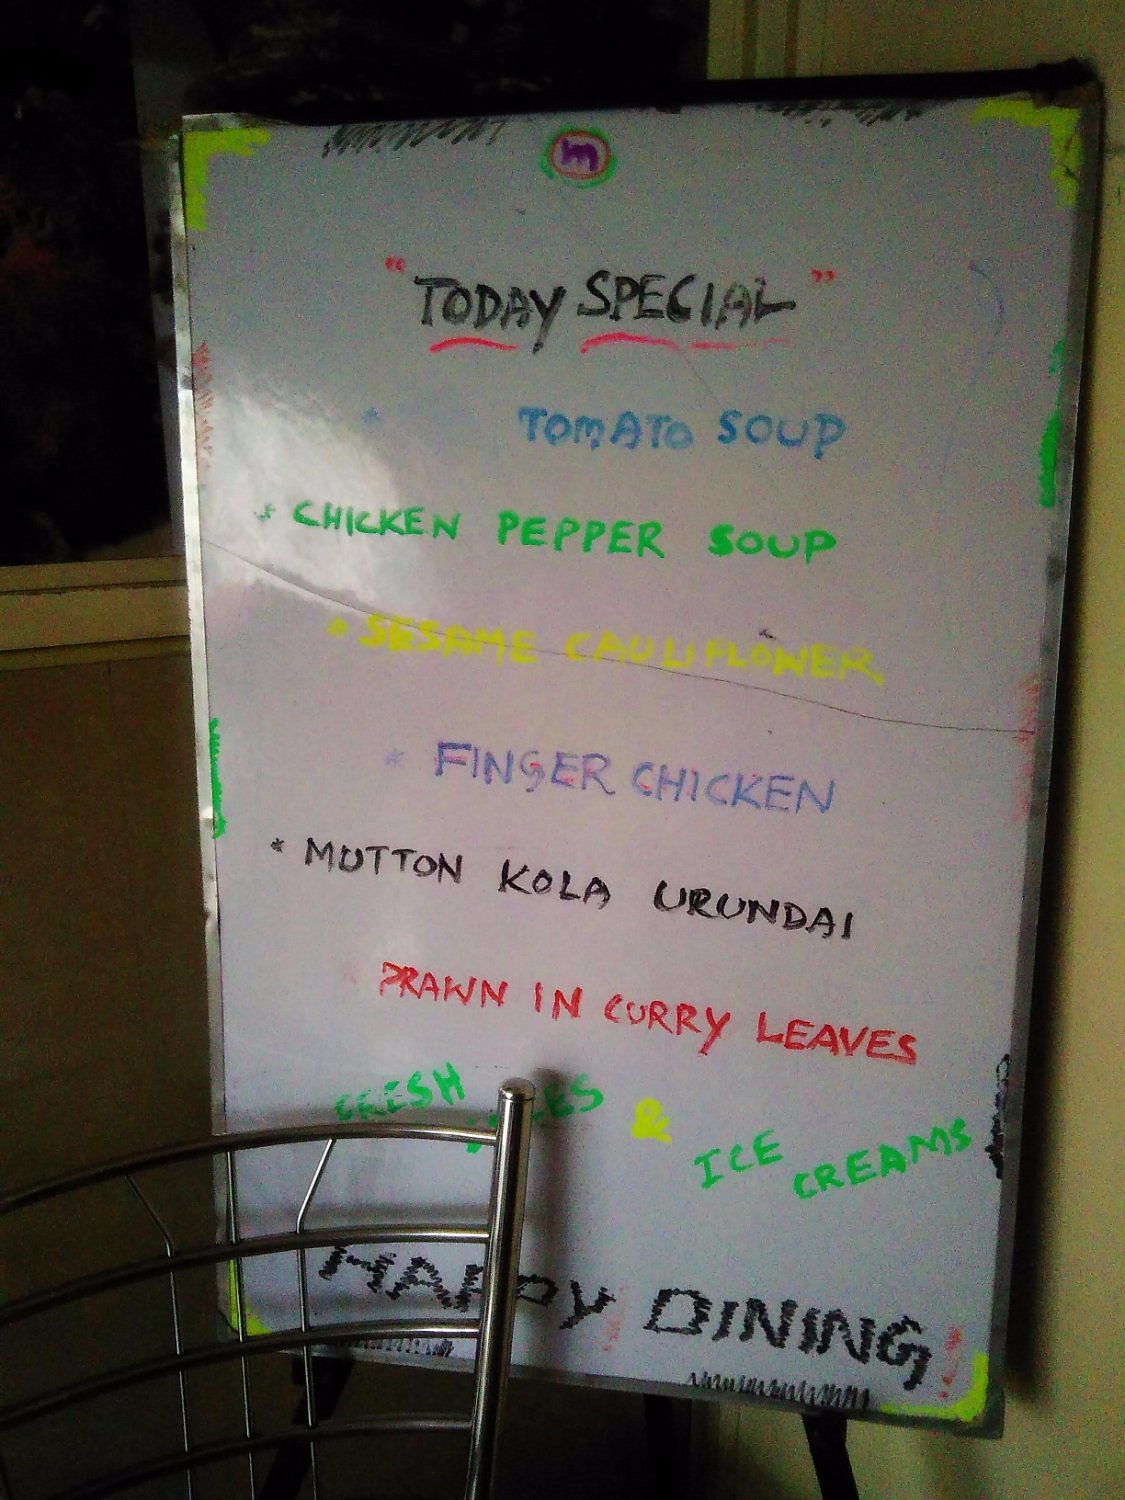 m
"TODAY SPECIAL"
* TOMATO SOUP
* CHICKEN PEPPER SOUP
* SESAME CAULIFLOWER
* FINGER CHICKEN
* MUTTON KOLA URUNDAI
PRAWN IN CURRY LEAVES
FRESH & ICE CREAMS
HAPPY DINING!